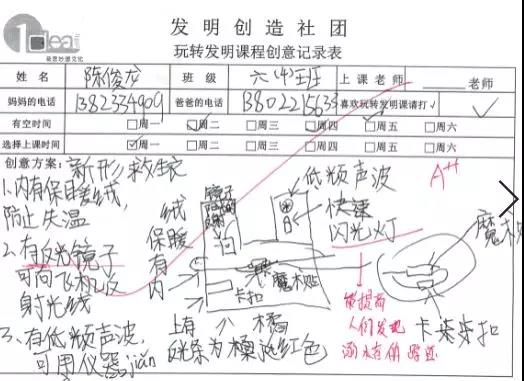 idea
发明创造社团
玩转发明课程创意记录表
姓名 陈俊龙 班级 六(4)班 上课老师 ______老师
妈妈的电话 1382334909 爸爸的电话 13802215633 喜欢玩转发明课请打√ √
有空时间 □周一 □周二 □周三 □周四 □周五 □周六
选择上课时间 □周一 □周二 □周三 □周四 □周五 □周六
创意方案: 新形救生衣
1.内有保暖绒,
防止失温
2.有反光镜子
可向飞机反
射光线
3.有低频声波,
可用仪器jiàn
绒
保暖
有
内
镜子
低频声波
快速
闪光灯
A++
魔术贴
卡扣
魔术
卡来穿扣
能提前
人们发现
上有
色